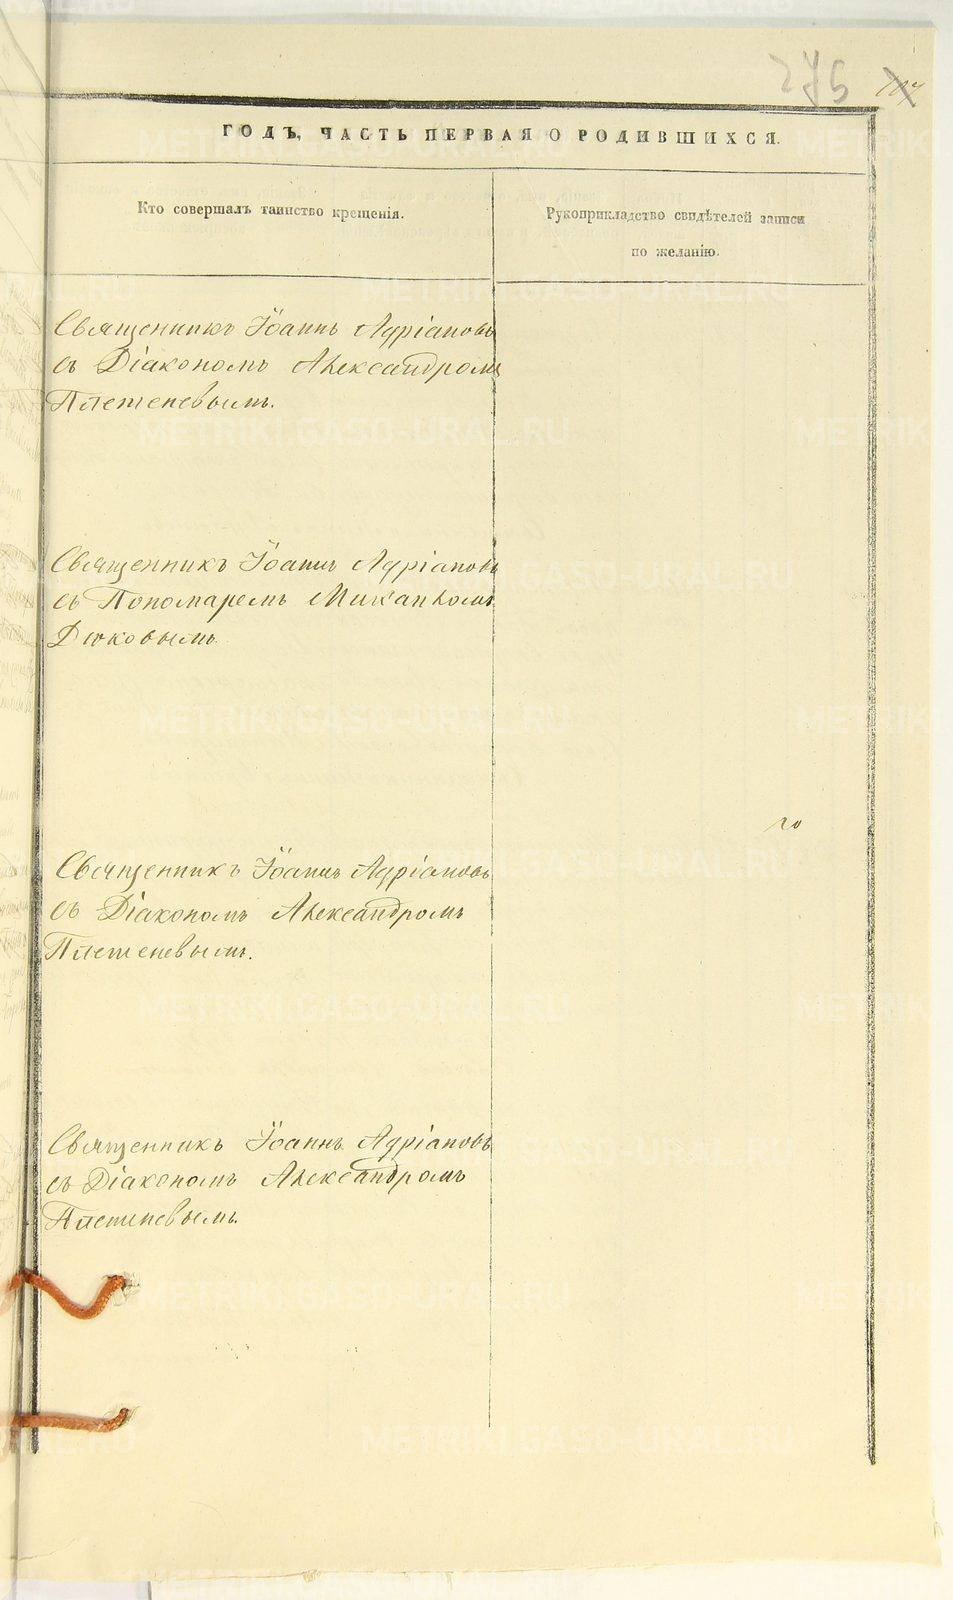 275
ГОДЪ, ЧАСТЬ ПЕРВАЯ О РОДИВШИХСЯ.
Кто совершалъ таинство крещенія.
Рукоприкладство свидѣтелей записи
по желанію.
Священникъ Іоаннъ Адріановъ
съ Діакономъ Александромъ
Плетеневымъ.
Священникъ Іоаннъ Адріановъ
съ Пономаремъ
Дюковымъ
го
Священникъ Іоаннъ Адріановъ
съ Діакономъ Александромъ
Плетеневымъ.
Священникъ Іоаннъ Адріановъ
съ Діакономъ Александромъ
Плетеневымъ.
METRIKI.GASO-URAL.RU